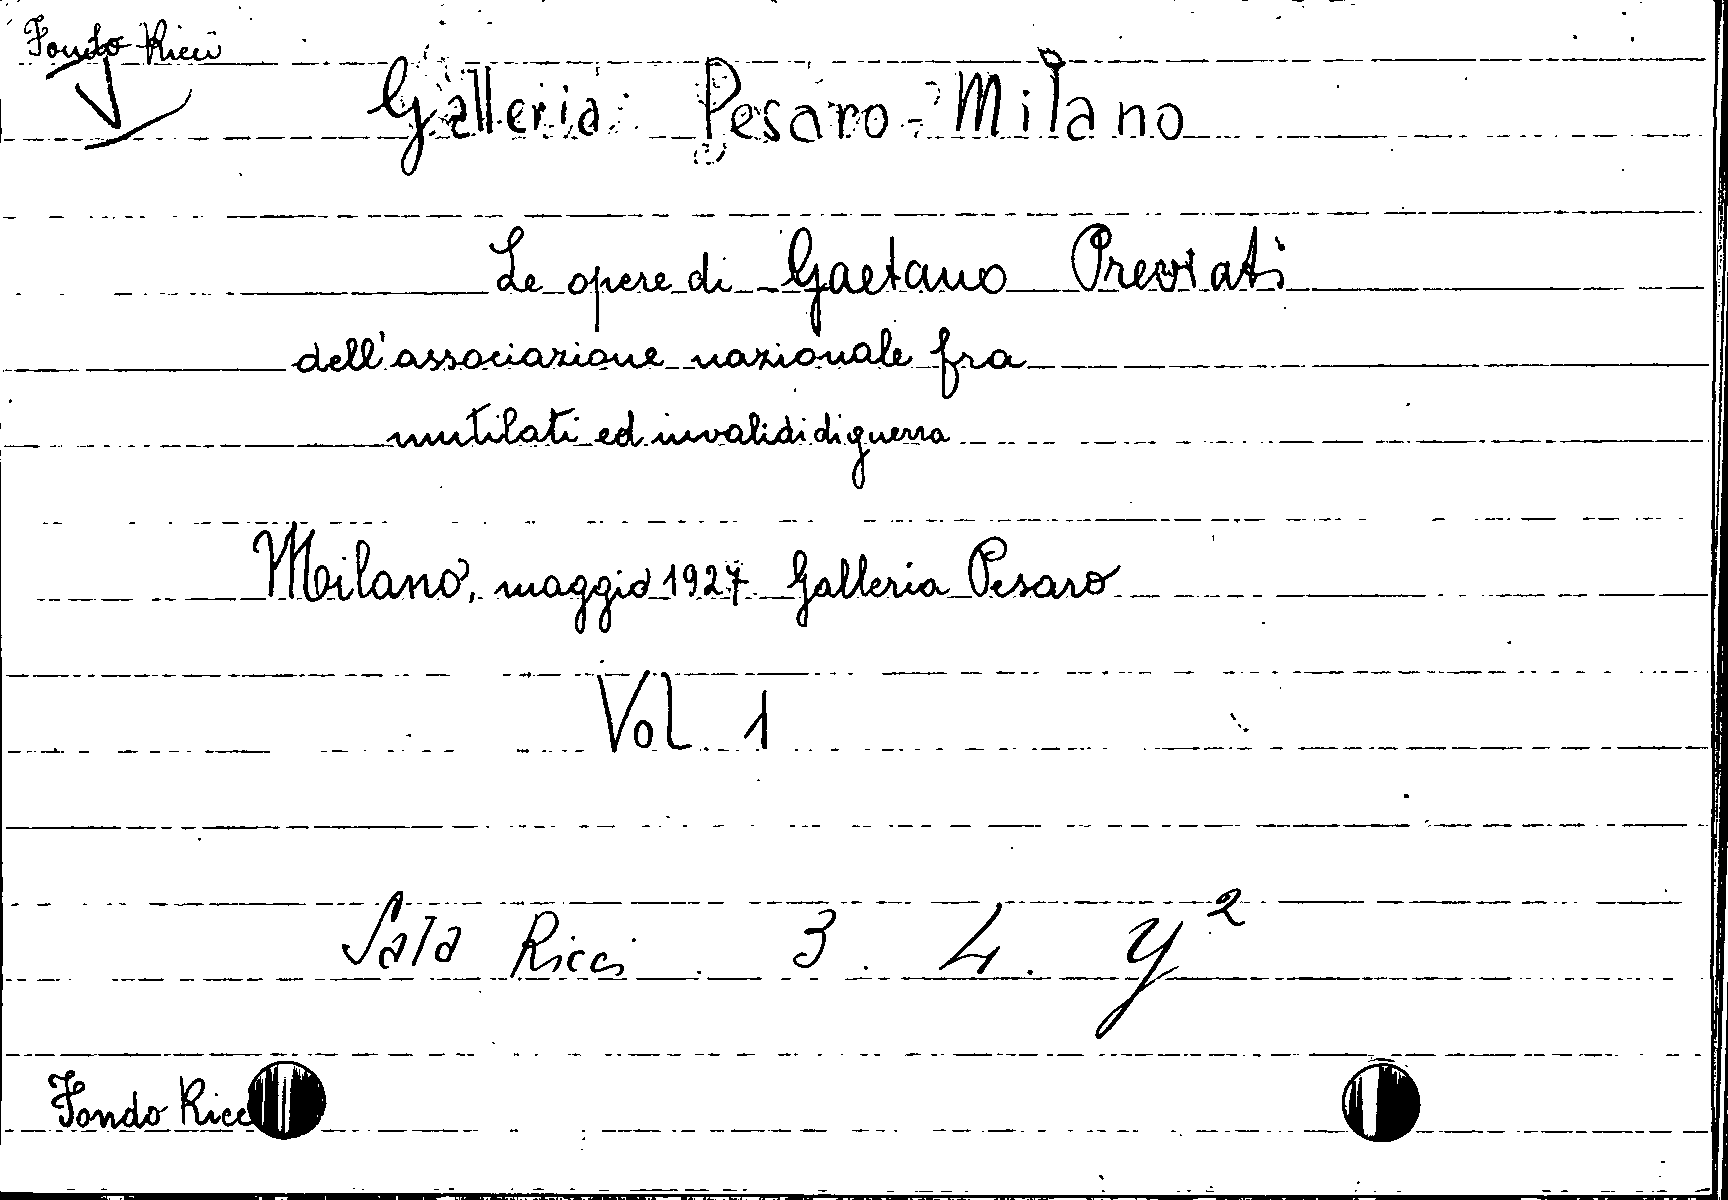 Fondo Ricci
Galleria Pesaro - Milano
Le opere di Gaetano Previati
dell'associazione nazionale fra
mutilati ed invalidi di guerra
Milano, maggio 1927 Galleria Pesaro
Vol 1
Sala Ricci . 3 . 4 . y²
Fondo Ricc